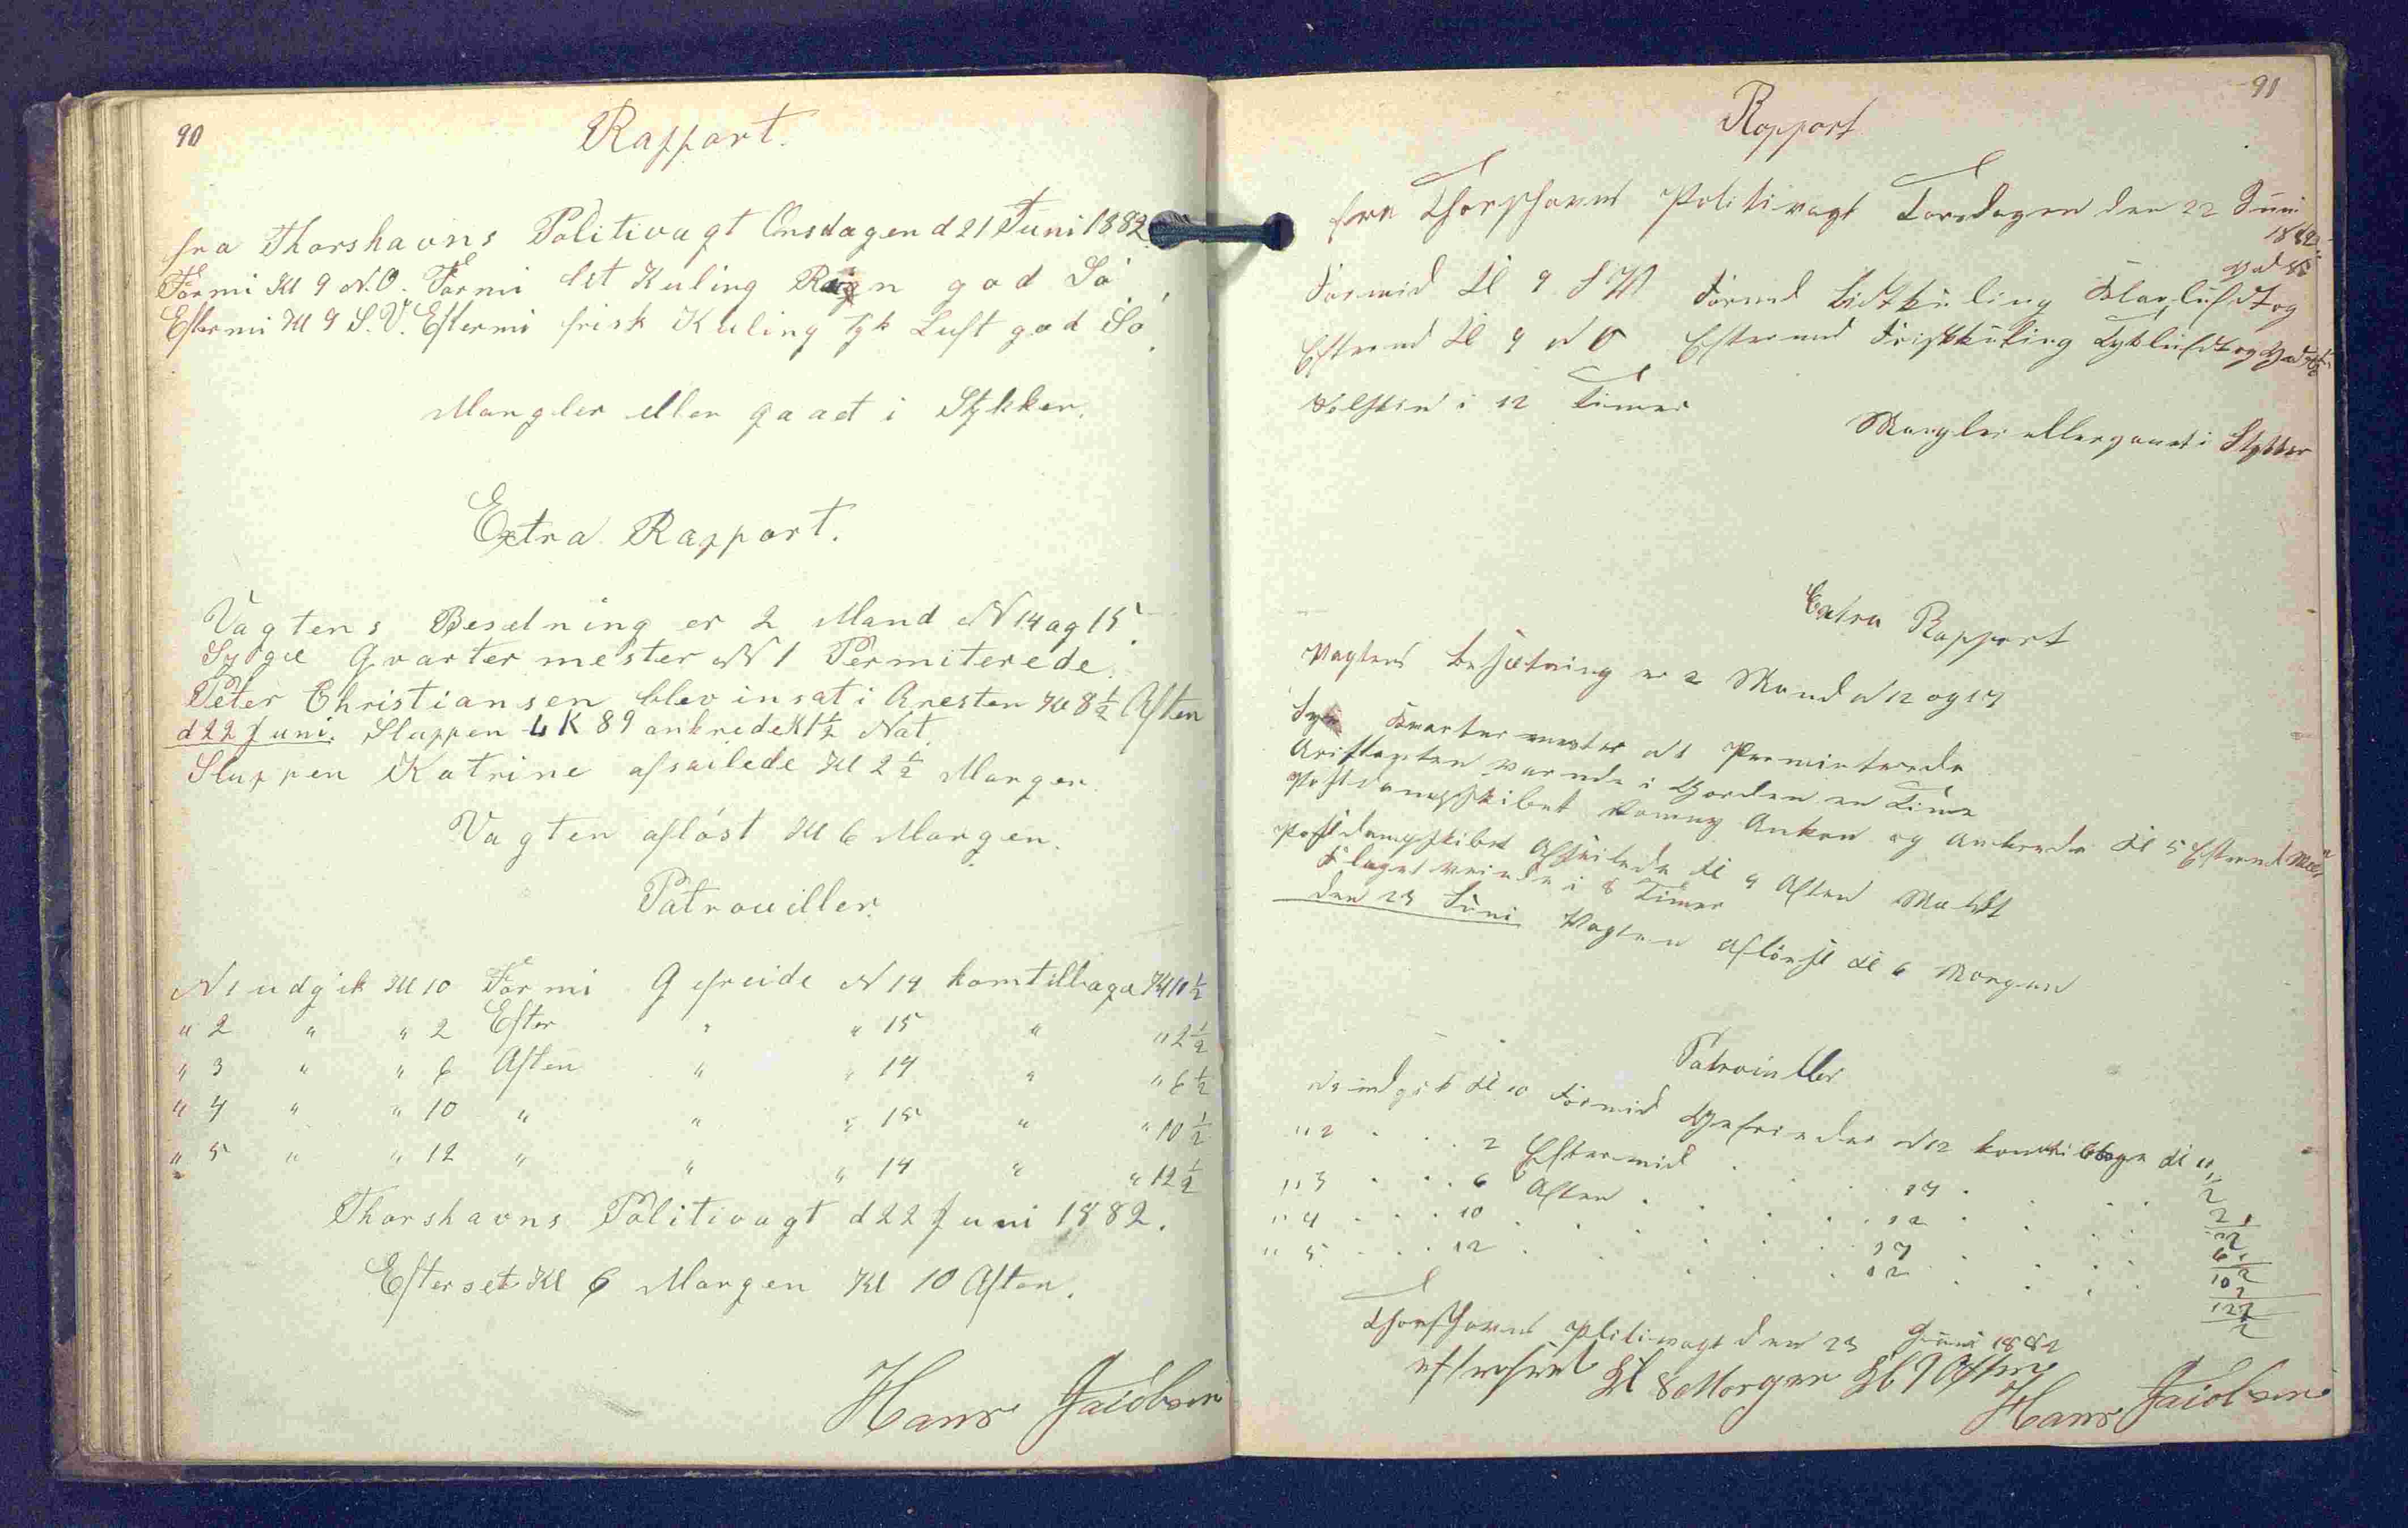 90
Rapport.
fra Thorshavns Politivagt Onsdagen d 21 Juni 1882.
Formi Kl 9 N.O. Formi let Kuling Regn god Sö,
Eftermi Kl 9 S.V. Eftermi frisk Kuling tyk Luft god Sö.
Mangler eller gaaet i Stykker.
Extra Rapport.
Vagtens Besetning er 2 Mand N 14 og 15.
Syge Qvartermester N 1 Permiterede.
Peter Christiansen blev insat i Aresten Kl 8½ Aften
d 22 Juni. Sluppen LK 89 ankrede Kl 1½ Nat.
Sluppen Katrine afseilede Kl 2½ Morgen.
Vagten aflöst Kl 6 Morgen.
Patrouiller.
N 1 udgik Kl 10 Formi Gefreide N 14 kom tilbage Kl 10½
" 2 " " 2 Efter " " 15 " " 2½
" 3 " " 6 Aften " " 14 " " 6½
" 4 " " 10 " " " 15 " " 10½
" 5 " " 12 " " " 14 " " 12½
Thorshavns Politivagt d 22 Juni 1882.
Efterset Kl 6 Morgen Kl 10 Aften.
Hans Jacobsen
91
Rapport
fra Thorshavns Politivagt Torsdagen den 22 Juni
1882
Formid Kl 9 S W Formd Lidtkuling Klarluft og
god Sö
Eftermd Kl 9 N O Eftermd Friskkuling Tykluft og god Sö
Solskin i 12 Timer
Mangler eller gaaet i Stykker
Extra Rapport
Vagtens Besætning er 2 Mand N 12 og 17
Syge Kvartermester N 1 Perminterede
Aristanten varude i Gorden en Time
Postdampskibet Romny Ankom og Ankrede Kl 5 Eftermd
Postdampskibet Afseilede Kl 9 Aften
Flaget veiede i 8 Timer
den 23 Juni Vagten aflöst Kl 6 Morgen
Patrouiller
N 1 udgik Kl 10 Formid Gefreider N 12 kom tilbage Kl ½ 11
" 2 . . 2 Eftermid . . 17 . . 2½
" 3 . . 6 Aften . . 12 . . 6½
" 4 . . 10 . . . 17 . . 10½
" 5 . . 12 . . . 12 . . 12½
Thorshavns Politivagt den 23 Juni 1882
efterset Kl 8 Morgen Kl 9 Aften
Hans Jacobsen